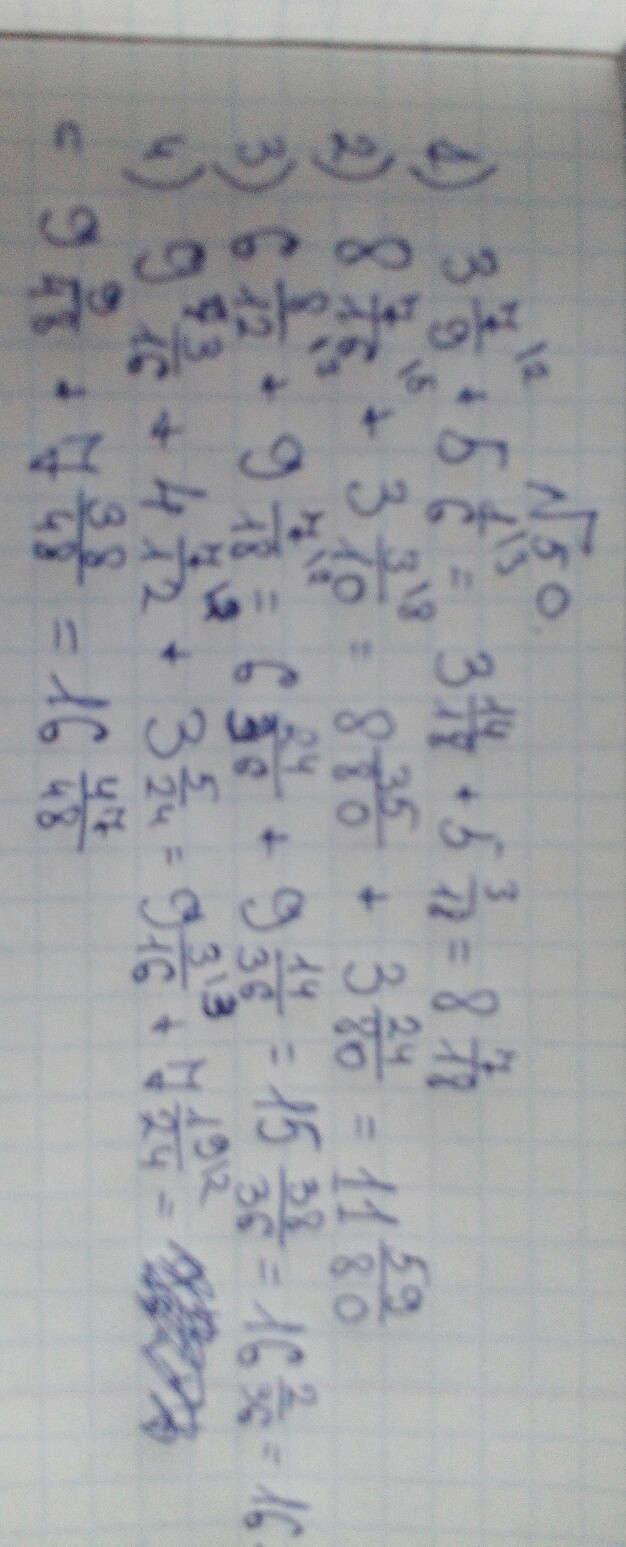 √50.
1) 3 7/9 \2 + 5 1/6 \3 = 3 14/18 + 5 3/18 = 8 7/18
2) 8 7/16 \5 + 3 3/10 \8 = 8 35/80 + 3 24/80 = 11 59/80
3) 6 8/12 \3 + 9 7/18 \2 = 6 24/36 + 9 14/36 = 15 38/36 = 16 2/36 = 16
4) 9 3/16 + 4 7/12 \2 + 3 5/24 = 9 3/16 \3 + 7 19/24 \2 =
= 9 9/48 + 7 38/48 = 16 47/48